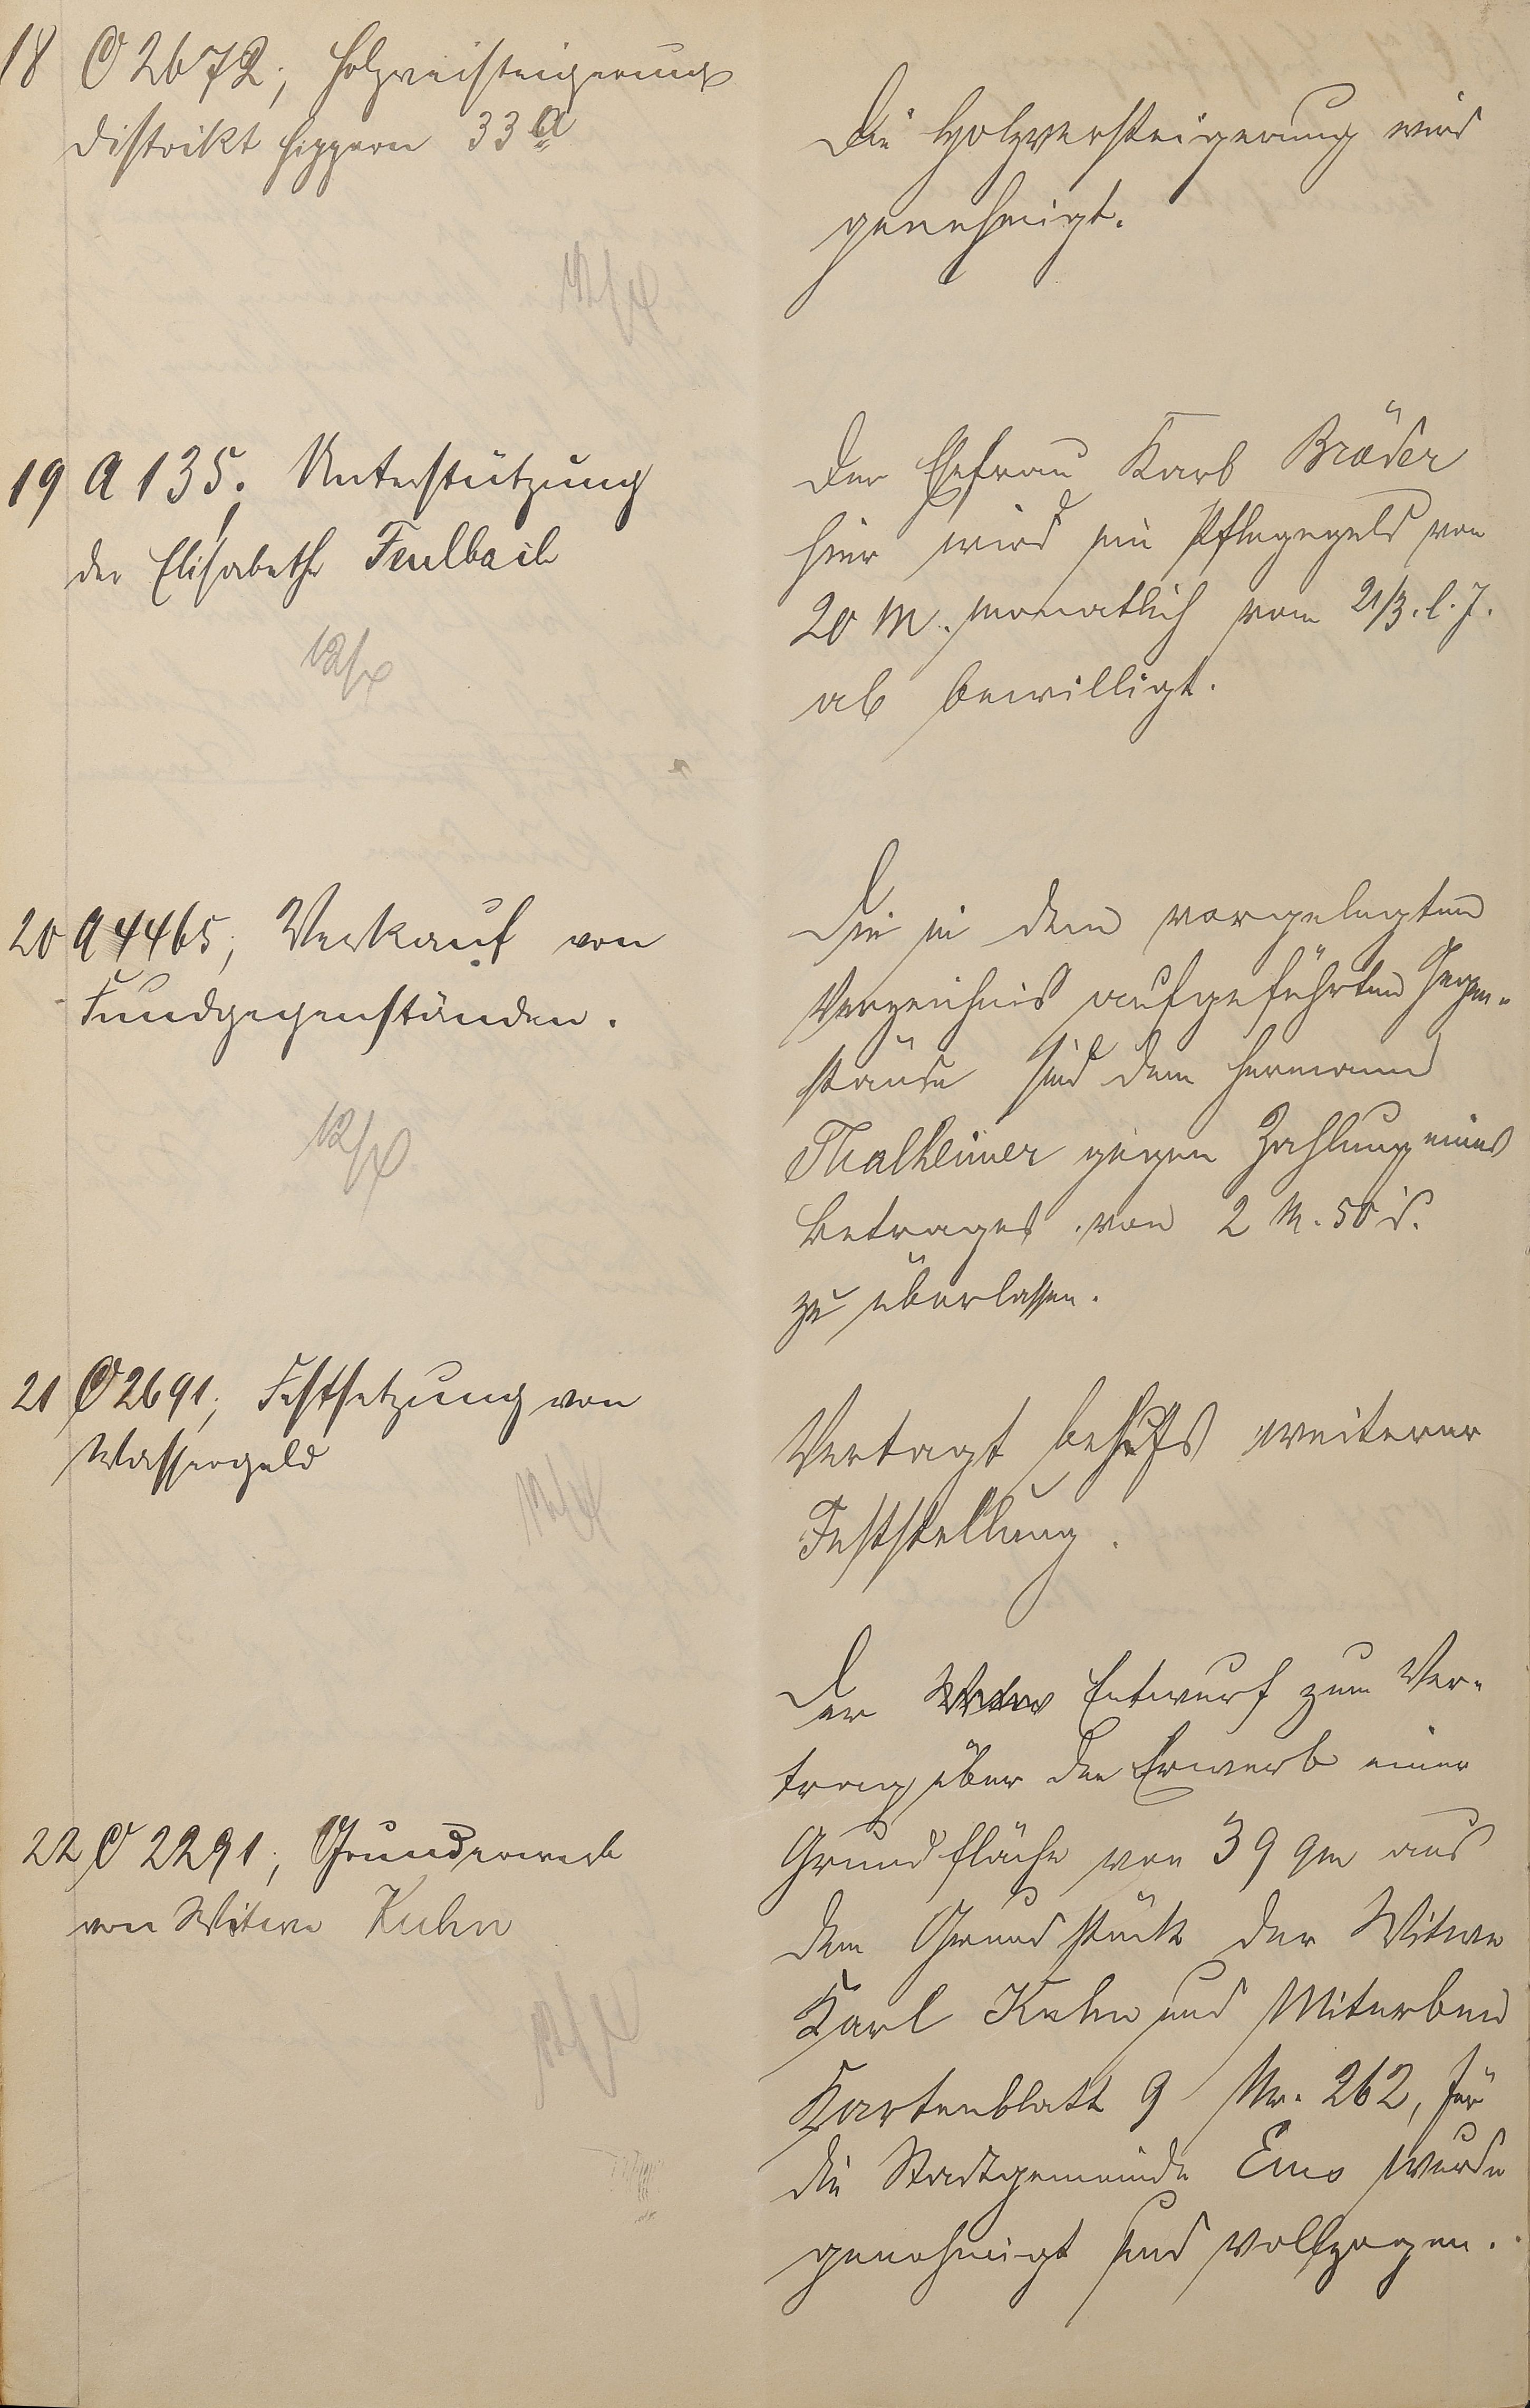 18 C 2672; Holzversteigerung
Distrikt Hippern 33a
Die Holzversteigerung wird
genehmigt.
19 A 135. Unterstützung
der Elisabethe Feulbach
12/X
Der Ehefrau Karl Bröder
hier wird ein Pflegegeld von
20 M. monatlich vom 21/3. l. J.
ab bewilligt.
20 A 4465; Verkauf von
Fundgegenständen.
12/X
Die in dem vorgelegten
Verzeichnis aufgeführten Gegen-
stände sind dem Hermann
Thalheimer gegen Zahlung eines
Betrages von 2 M. 50 d.
zu überlassen.
21 C 2691; Festsetzung von
Wassergeld
Vertagt behufs weiterer
Feststellung.
22 C 2291; Grunderwerb
von Witwe Kuhn
Der Entwurf zum Ver-
trag über den Erwerb einer
Grundfläche von 39 qm aus
dem Grundstück der Witwe
Karl Kuhn und Miterben
Kartenblatt 9 Nr. 262, für
die Stadtgemeinde Ems wurde
genehmigt und vollzogen.